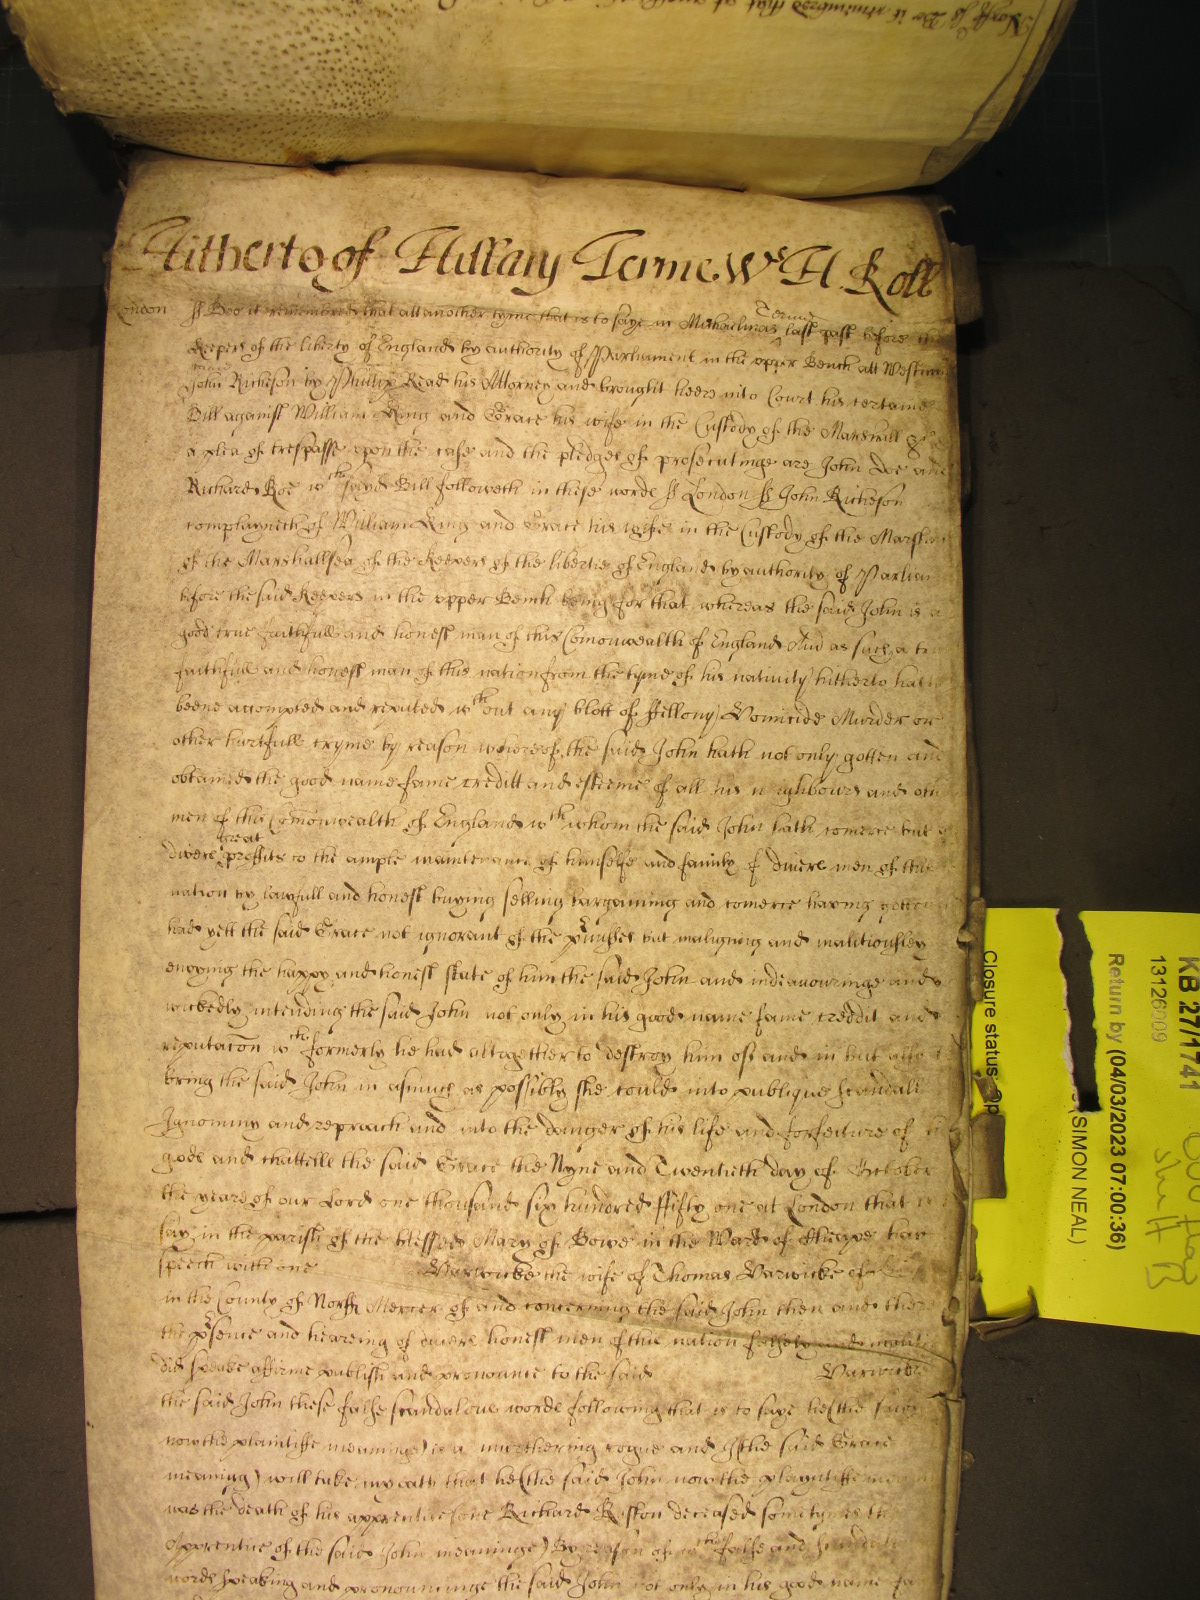 Norff ss Be it remembred that at
Hitherto of Hillary Terme Ws H Roll
London ss Bee it remembred that att another tyme that is to saye in Michaelmas Terme last past before the
Keepers of the liberty of England by authority of Parliament in the upper Bench att Westm
came John Rickeson by Phillip Read his Attorney and brought heere into Court his certaine
Bill against William King and Grace his wife in the Custody of the Marshall &c
a plea of trespasse upon the case and the pledges of prosecutinge are John Doe and
Richard Roe wth sayd Bill followeth in these words ss London ss John Rickeson
complayneth of William King and Grace his wife in the Custody of the Marshall
of the Marshallsea of the Keepers of the libertie of England by authority of Parliam
before the said Keepers in the upper Bench being for that whereas the said John is a
good true faithfull and honest man of this Comonwealth of England And as such a tr
faithfull and honest man of this nation from the tyme of his nativity hitherto hath
beene accompted and reputed wthout any blott of ffellony Homicide Murder or
other hurtfull cryme by reason whereof the said John hath not only gotten and
obtained the good name fame creditt and esteeme of all his neighbours and oth
men of this Comonwealth of England wth whom the said John hath comerce but
divers great proffits to the ample maintenance of himselfe and family of divers men of this
nation by lawfull and honest buying selling bargaining and comerce having gotten
had yett the said Grace not ignorant of the pmisses but maligning and malitiousley
envying the happy and honest state of him the said John and indeavouringe and
wickedly intending the said John not only in his good name fame creddit and
reputacon wch formerly he had altogether to destroy him of and in but alsoe
bring the said John in asmuch as possibly she could into publique scandall
Ignominy and reproach and into the danger of his life and forfeiture of his
gods and chattells the said Grace the Nyne and Twentieth day of October
the yeare of our Lord one thousand six hundred ffifty one at London that is
say in the parish of the blessed Mary of Bowe in the Ward of Cheape hav
speech with one Barwicke the wife of Thomas Barwicke of
in the County of Norff Mercer of and concerning the said John then and there
the psence and hearing of divers honest men of this nation falsely and maliti
did speake affirme publish and pronounce to the said Barwicke
the said John these false scandalous words following that is to saye he (the said
now the plaintiffe meaninge) is a murthering rogue and I (the said Grace
meaning) will take my oath that he (the said John now the playntiffe mean
was the death of his apprentice (one Richard Risson deceased sometymes the
Apprentice of the said John meaninge) By reason of wch false and scandal
words speaking and pronouncinge the said John not only in his good name fa
KB 27/1741
13126009
Return by (04/03/2023 07:00:36)
(SIMON NEAL)
Closure status: Op